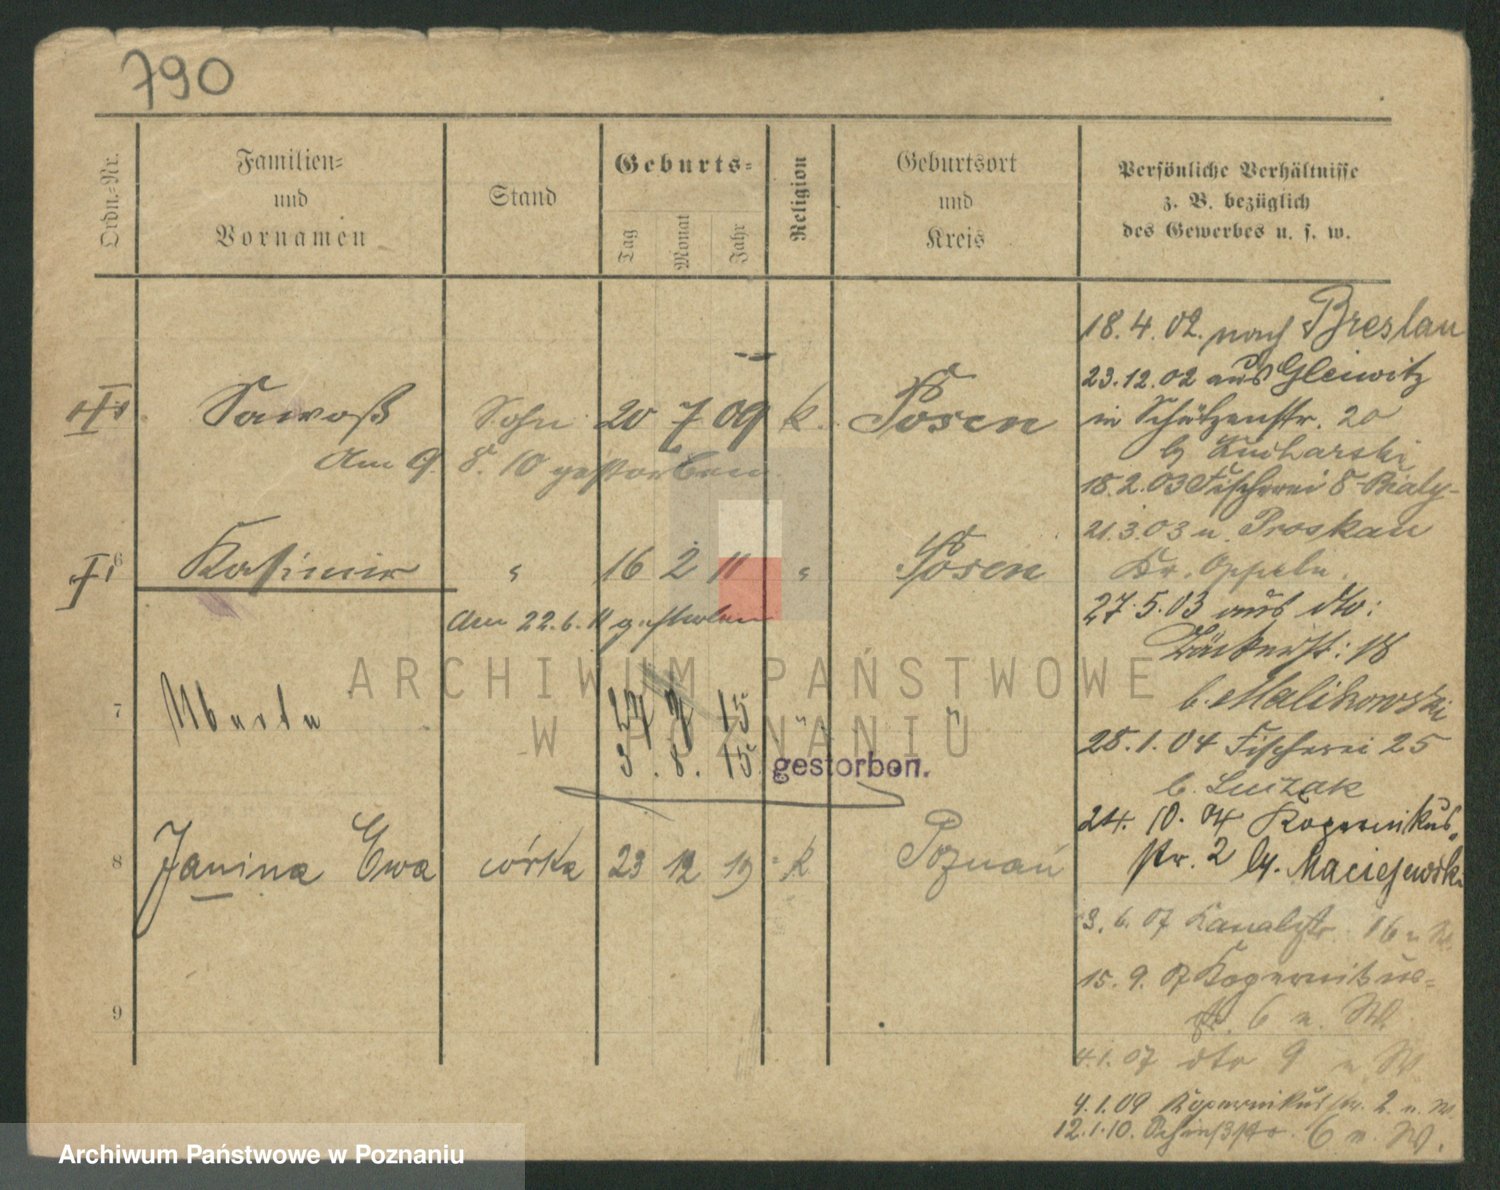 790
Ordn.=Nr.
Familien=
und
Vornamen
Stand
Geburts=
Tag
Monat
Jahr
Religion
Geburtsort
und
Kreis
Persönliche Verhältnisse
z. B. bezüglich
des Gewerbes u. s. w.
Sohn 20 7 09 k. Posen
Am 9. 8. 10 gestorben
6 Kasimir " 16 2 11 " Posen
Am 22.6.11 gestorben
7 17 7 15 " "
3. 8. 15 gestorben.
8 Janina Ewa córka 23 12 19 k Poznań
9
18.4.02. nach Breslau
23.12.02 aus Gleiwitz
in Schützenstr. 20
by Kucharski
18.2.03 Fischerei 8
21.3.03 n. Proskau
Kr. Oppeln.
27.5.03 aus dto:
Bäckerstr: 18
b. Malikowski
28.1.04 Fischerei 25
b. Luczak
24.10.04 Kopernikus
str. 2 by. Maciejewski
3.6.07 Kanalstr. 16 n W.
15.9.07 Kopernikus=
str. 6 n. W.
4.1.07 dto 9 n W.
4.1.09 Kopernikusstr. 2 n. W.
12.1.10. 6 n. W.
ARCHIWUM PAŃSTWOWE
W POZNANIU
Archiwum Państwowe w Poznaniu